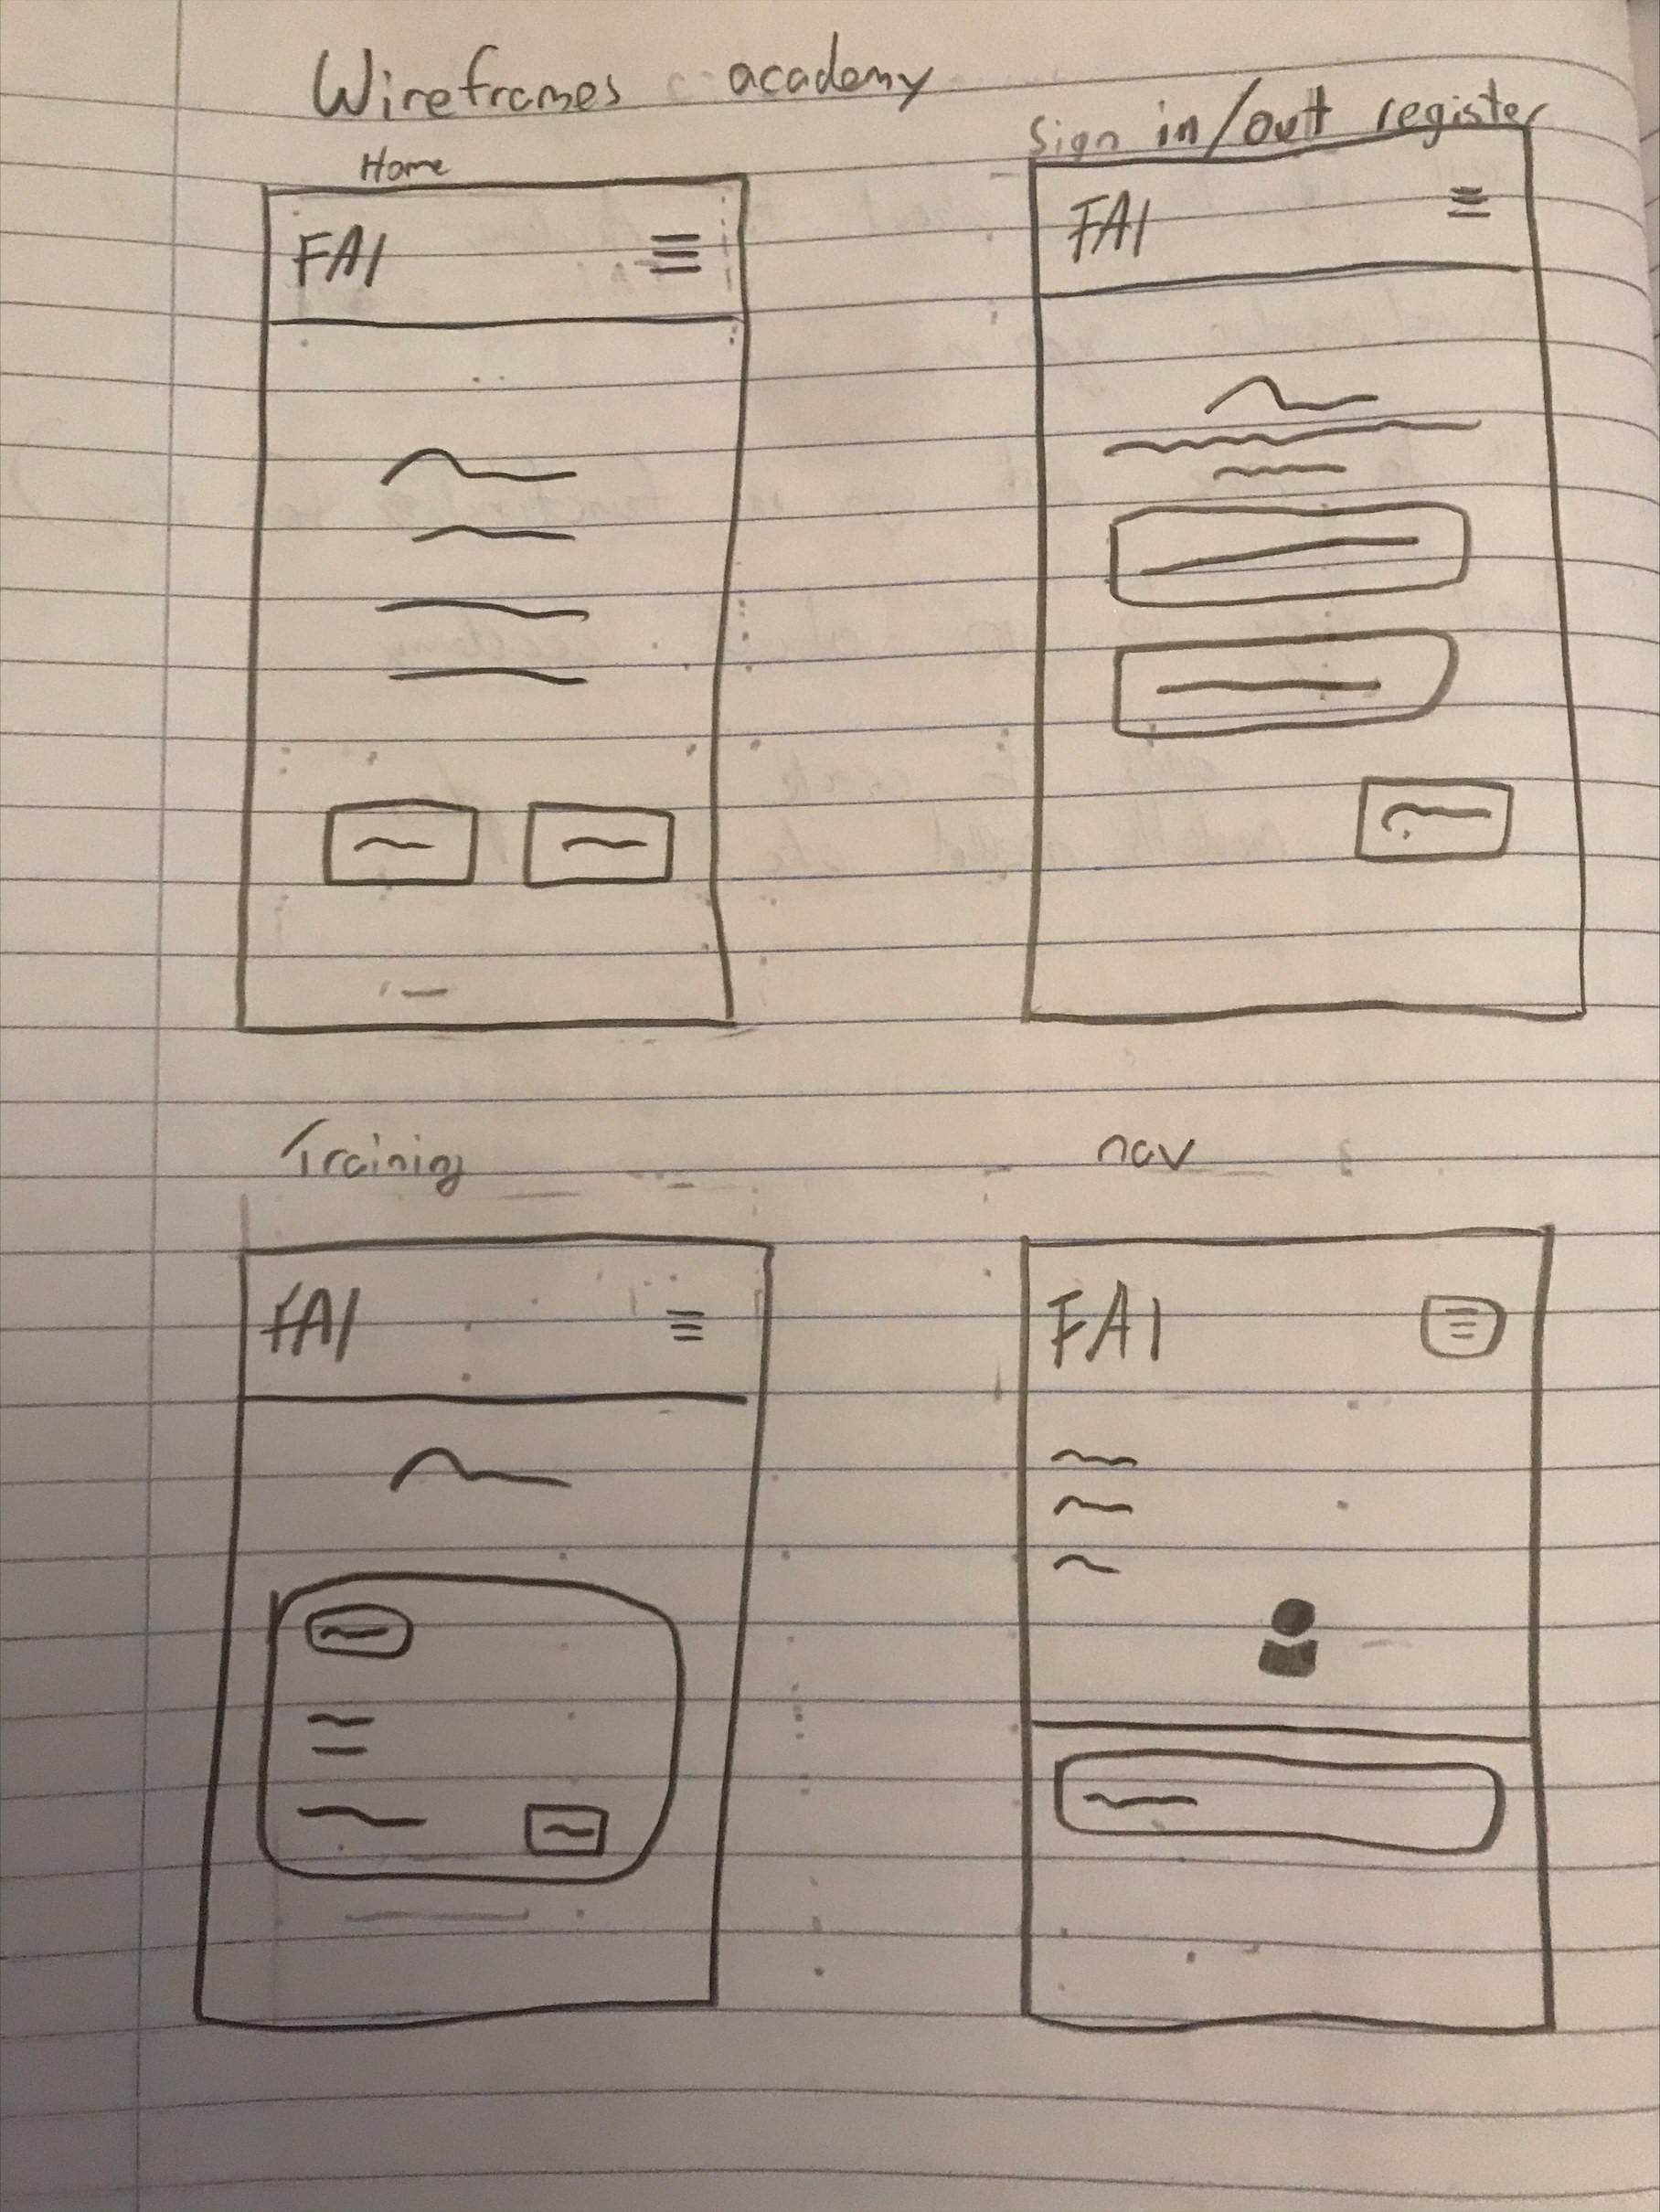 Wireframes academy
Home
Sign in/out register
FAI
FAI
Training
nav
FAI
FAI